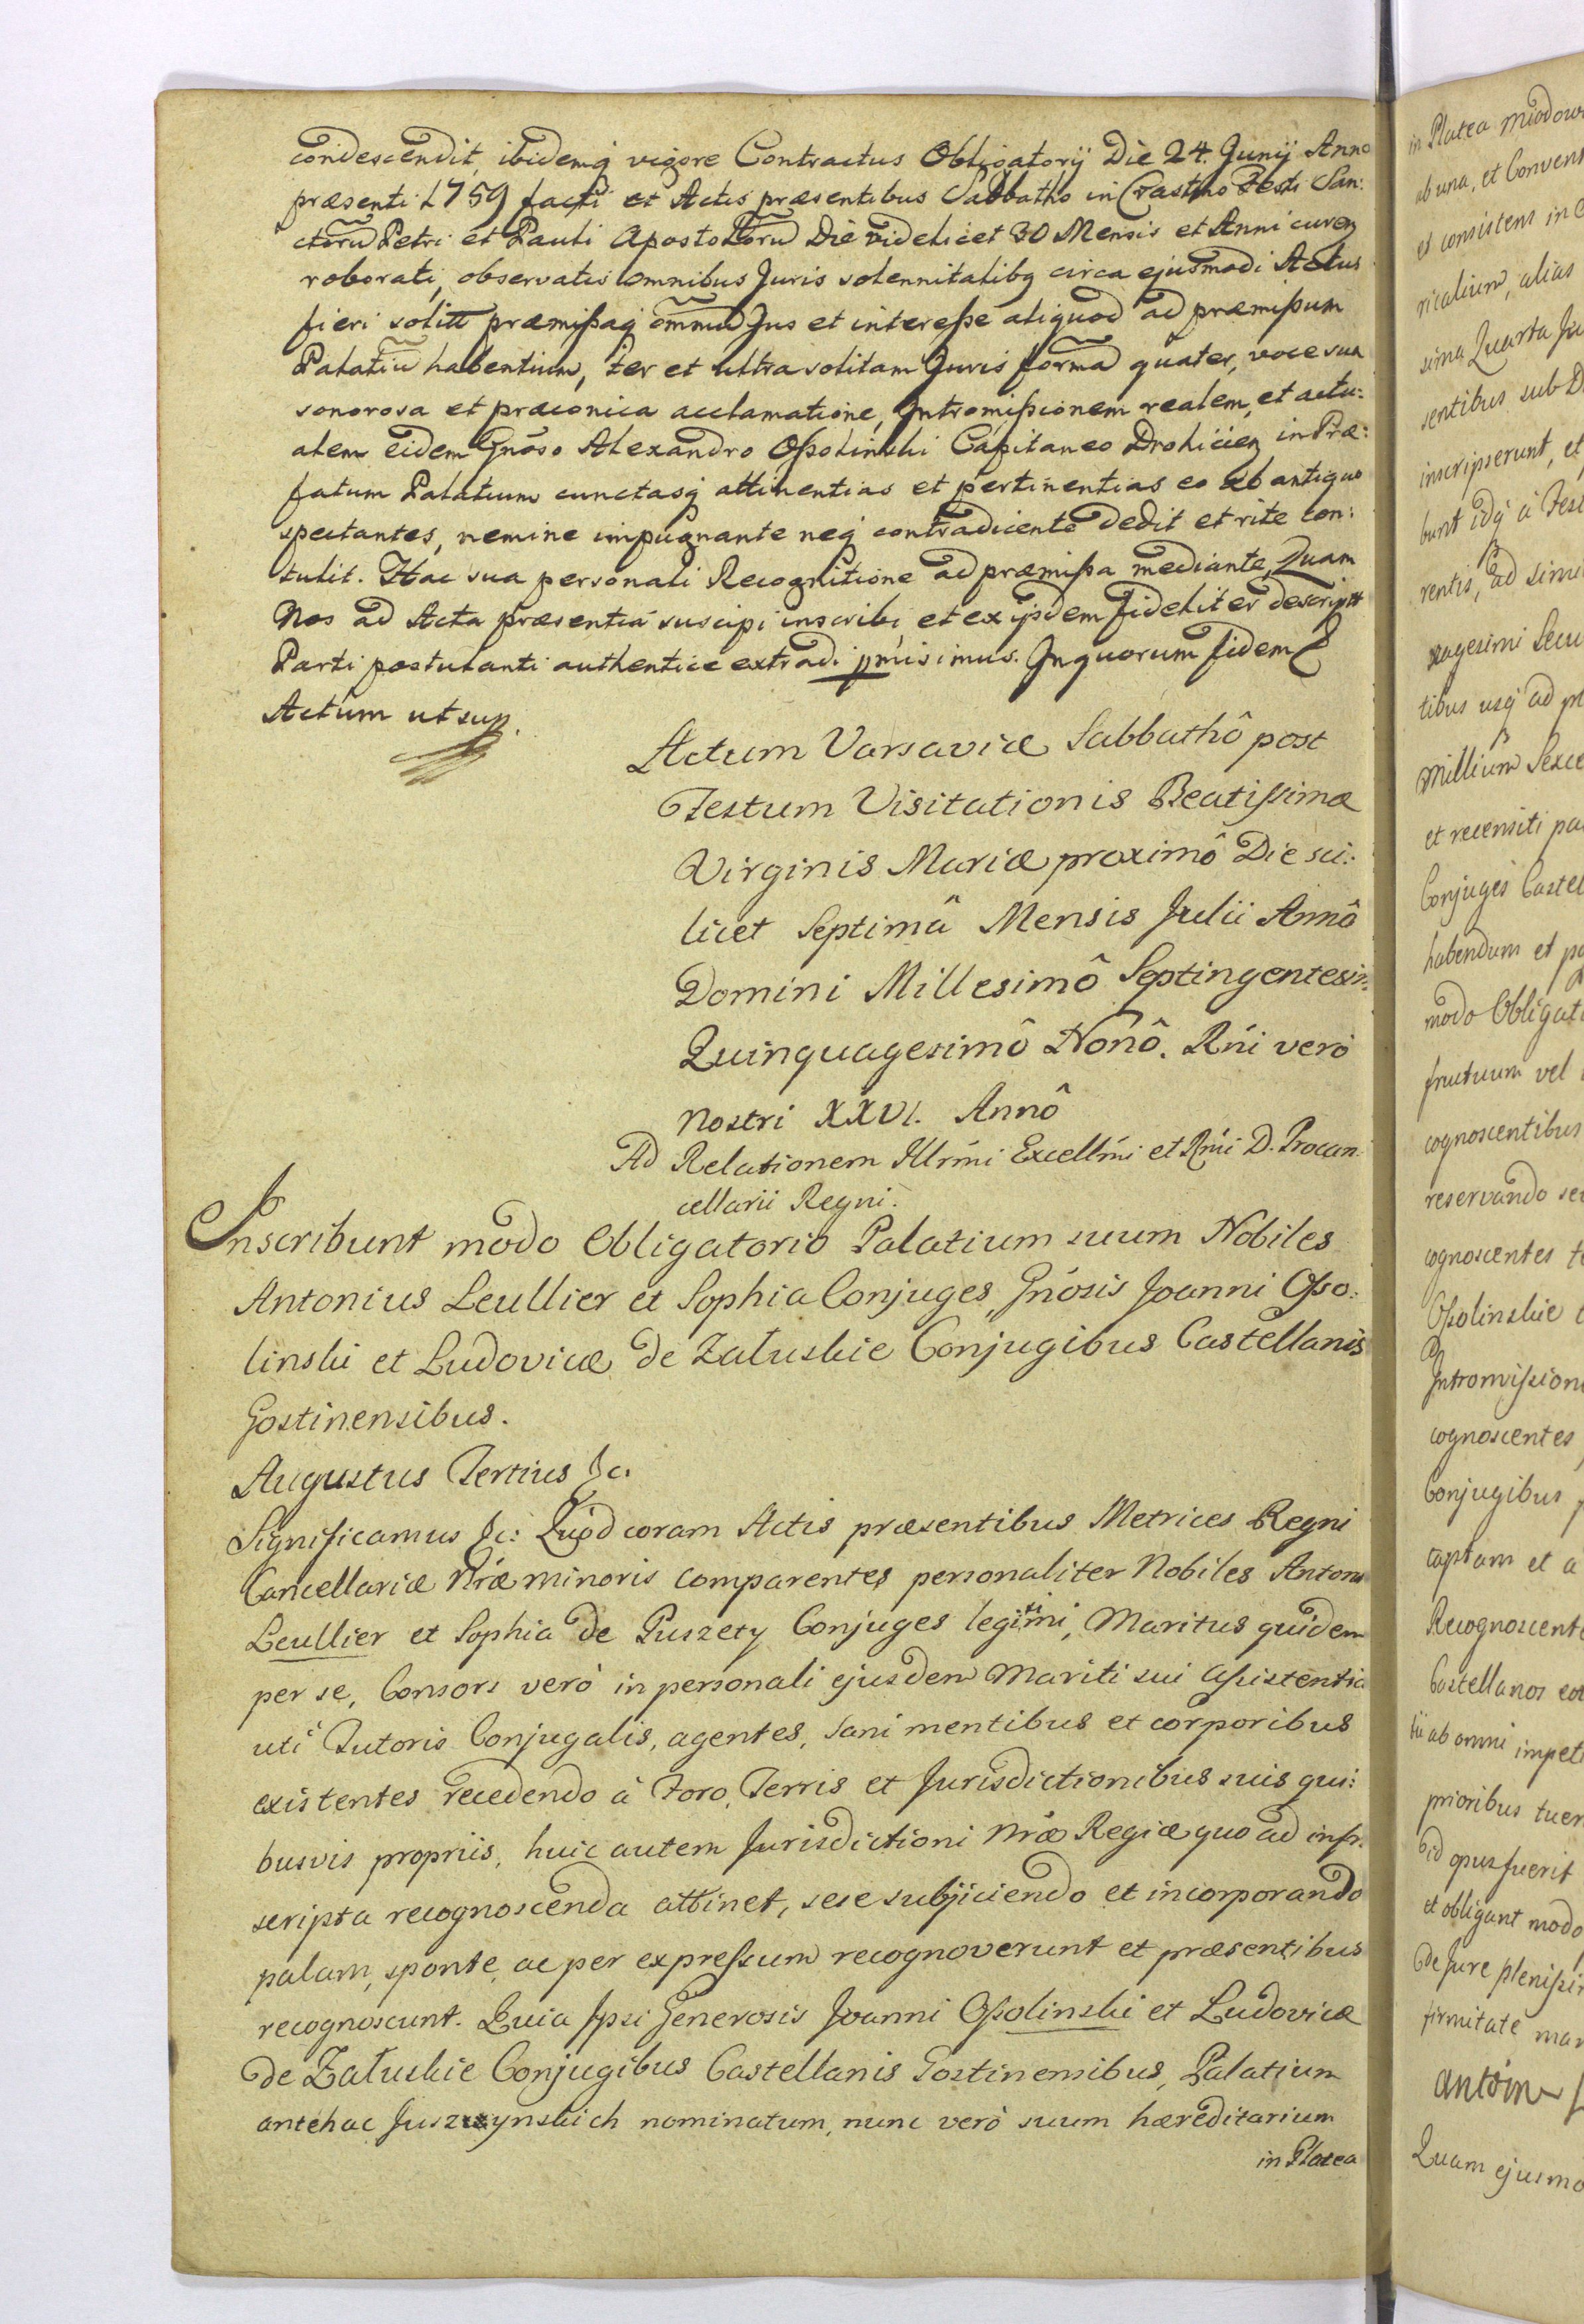 condescendit, ibidemq vigore Contractus Obligatorij Die 24. Junij Anno
præsenti 1759 facti et Actis præsentibus Sabbatho in Crastino Festi San:
ctoru Petri et Pauli Apostoloru Die videlicet 30 Mensis et Anni curen
roborati, observatis omnibus Juris solennitatibq circa ejusmodi Actus
fieri solitt præmißaq omniu Jus et intereße aliquod ad præmißum
Palatiu habentium, ter et ultra solitam Juris forma quater, voce sua
sonorosa et præconica acclamatione, Intromißionem realem, et actu:
alem eidem Gnoso Alexandro Oßolinski Capitaneo Drohicien in Præ:
fatum Palatium cunctasq attinentias et pertinentias eo ab antiquo
spectantes, nemine impugnante neq contradicente dedit et rite con:
tulit. Hac sua personali Recognitione ad præmißa mediante, Quam
Nos ad Acta præsentia suscipi inscribi, et ex ijsdem fideliter descriptt
Parti postulanti authentice extradi pmisimus. In quorum fidem &
Actum ut sup.
Actum Varsaviæ Sabbathô post
Festum Visitationis Beatißimæ
Virginis Mariæ proximô Die sci:
licet Septimâ Mensis Julii Annô
Domini Millesimô Septingentesim:
Quinquagesimô Nonô. Rńi verò
nostri XXVI. Annô
Ad Relationem Illrḿi Excellḿi et Rḿi D. Procan:
cellarii Regni.
Inscribunt modo Obligatorio Palatium suum Nobiles
Antonius Leullier et Sophia Conjuges, Gńosis Joanni Oßo:
linski et Ludovicæ de Załuskie Conjugibus Castellanis
Gostinensibus.
Augustus Tertius &c.
Significamus &c: Quod coram Actis præsentibus Metrices Regni
Cancellariæ Nræ minoris comparentes personaliter Nobiles Antoni
Leullier et Sophia de Puszety Conjuges legitimi, Maritus quidem
per se, Consors verò in personali ejusdem Mariti sui Aßistentia
uti Tutoris Conjugalis, agentes, sani mentibus et corporibus
existentes recedendo à Foro, Terris et Jurisdictionibus suis qui:
busvis propriis, huic autem Jurisdictioni Nræ Regiæ quo ad infr:
scripta recognoscenda attinet, sese subjiciendo et incorporando
palam, sponte, ac per expreßum recognoverunt et præsentibus
recognoscunt. Quia Ipsi Generosis Joanni Oßolinski et Ludovicæ
de Załuskie Conjugibus Castellanis Gostinensibus, Palatium
antehac nominatum, nunc verò suum hæreditarium
in Platea
in Platea Miodow
ab una, et Convent
et consistens in
ricalium, alias
sima Quarta Ju
sentibus sub D
inscripserunt, et
bunt idq à Fest
rentis, ad simi
xagesimi Secu
tibus usq ad
Millium Sexce
et recensiti pa
Conjuges Castel
habendum et po
modo Obligat
fructuum vel
cognoscentibus
reservando se
cognoscentes t
Oßolinskie
Intromißion
cognoscentes
Conjugibus
captam et a
Recognoscent
Castellanos eo
tii ab omni impet
prioribus tuer
id opus fuerit
et obligant modo
de Jure plenißi
firmitate man
Antoin
Quam ejusmo